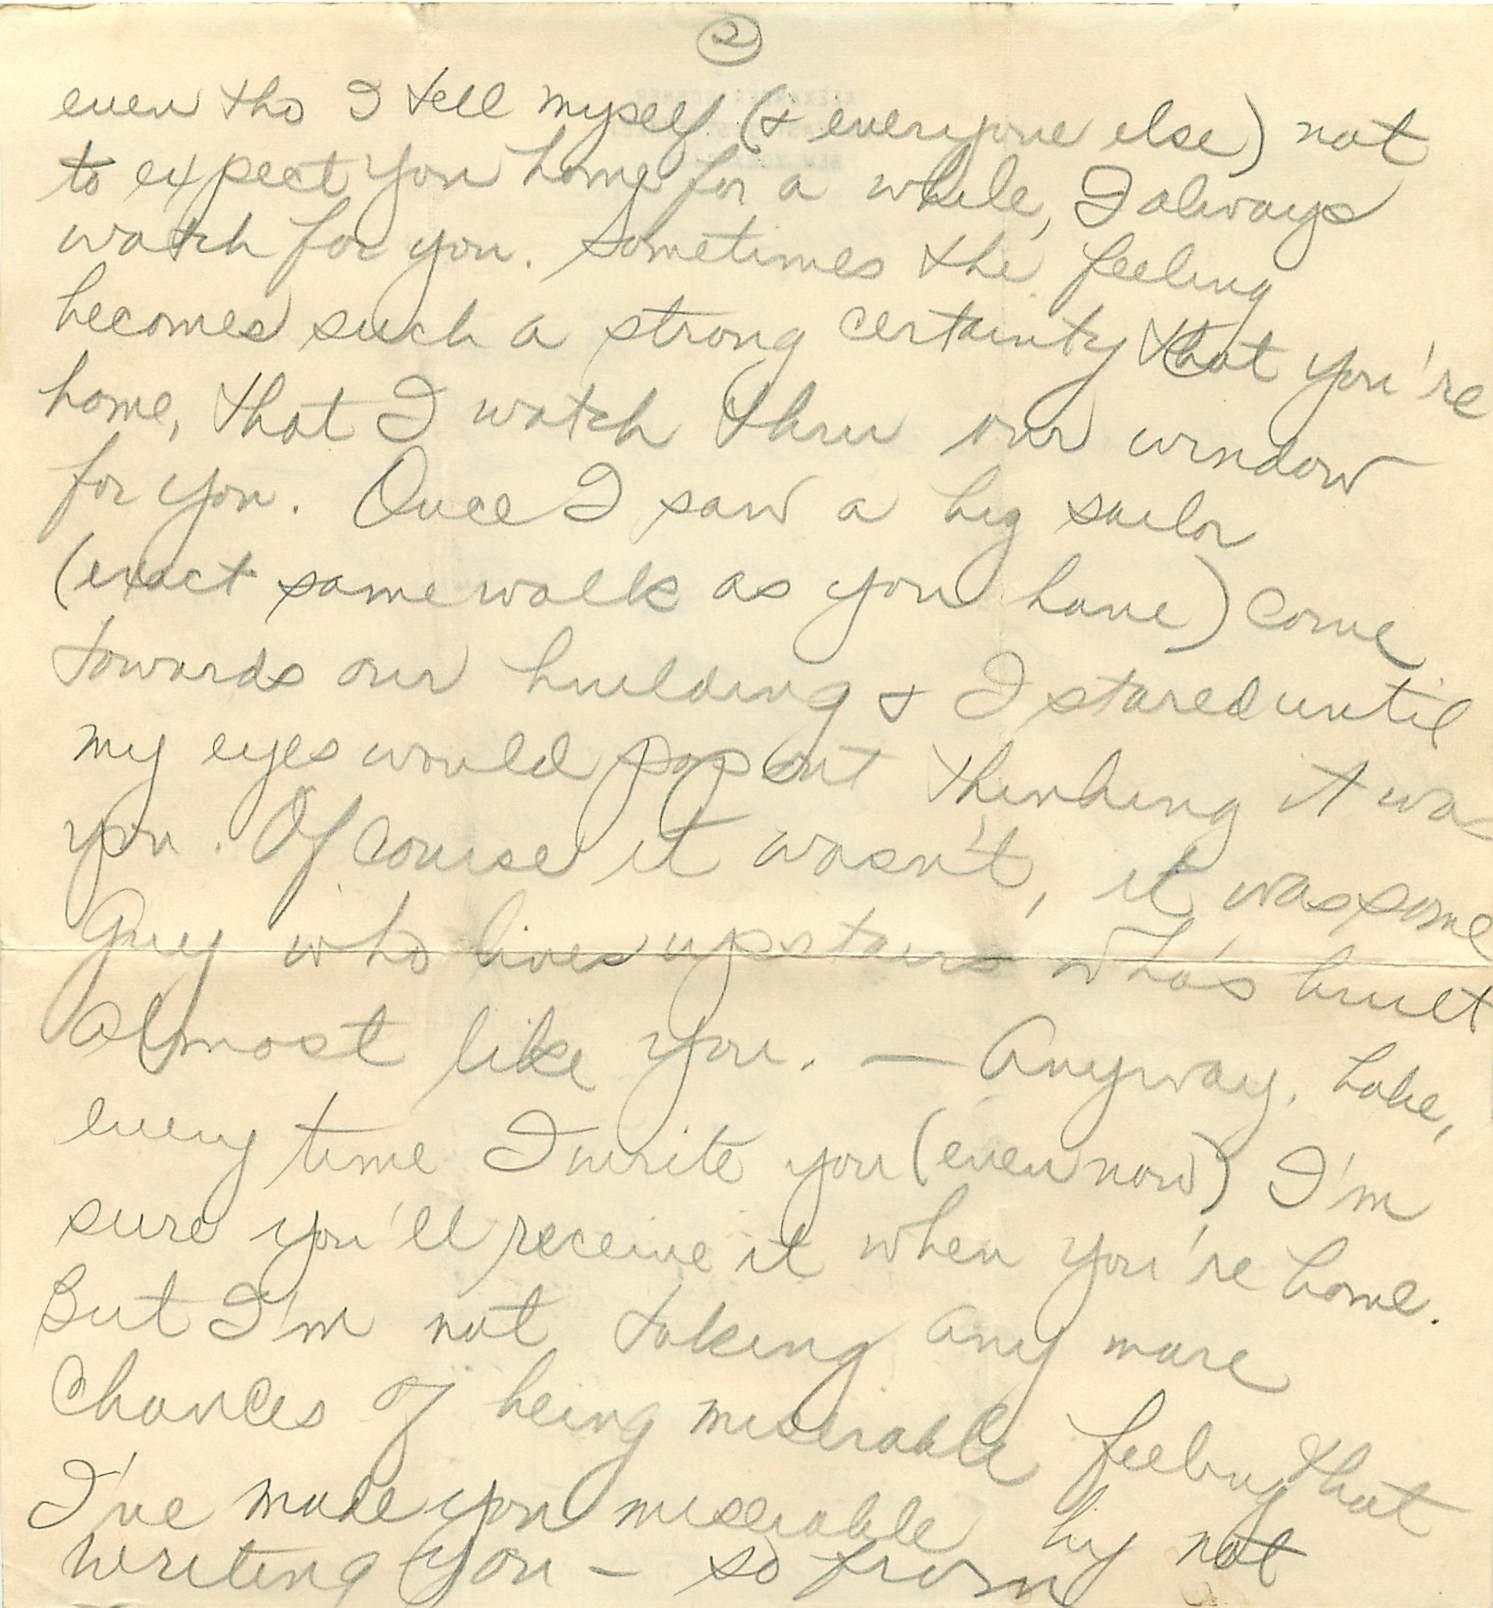 2
even tho I tell myself (& everyone else) not
to expect you home for a while, I always
watch for you. Sometimes the feeling
becomes such a strong certainty that you're
home, that I watch thru our window
for you. Once I saw a big sailor
(exact same walk as you have) come
towards our building & I stared until
my eyes would pop out thinking it was
you. Of course it wasn't, it was some
guy who lives upstairs who's built
almost like you. — Anyway, babe,
every time I write you (even now) I'm
sure you'll receive it when you're home.
But I'm not taking any more
chances of being miserable feeling that
I've made you miserable by not
writing you – so from